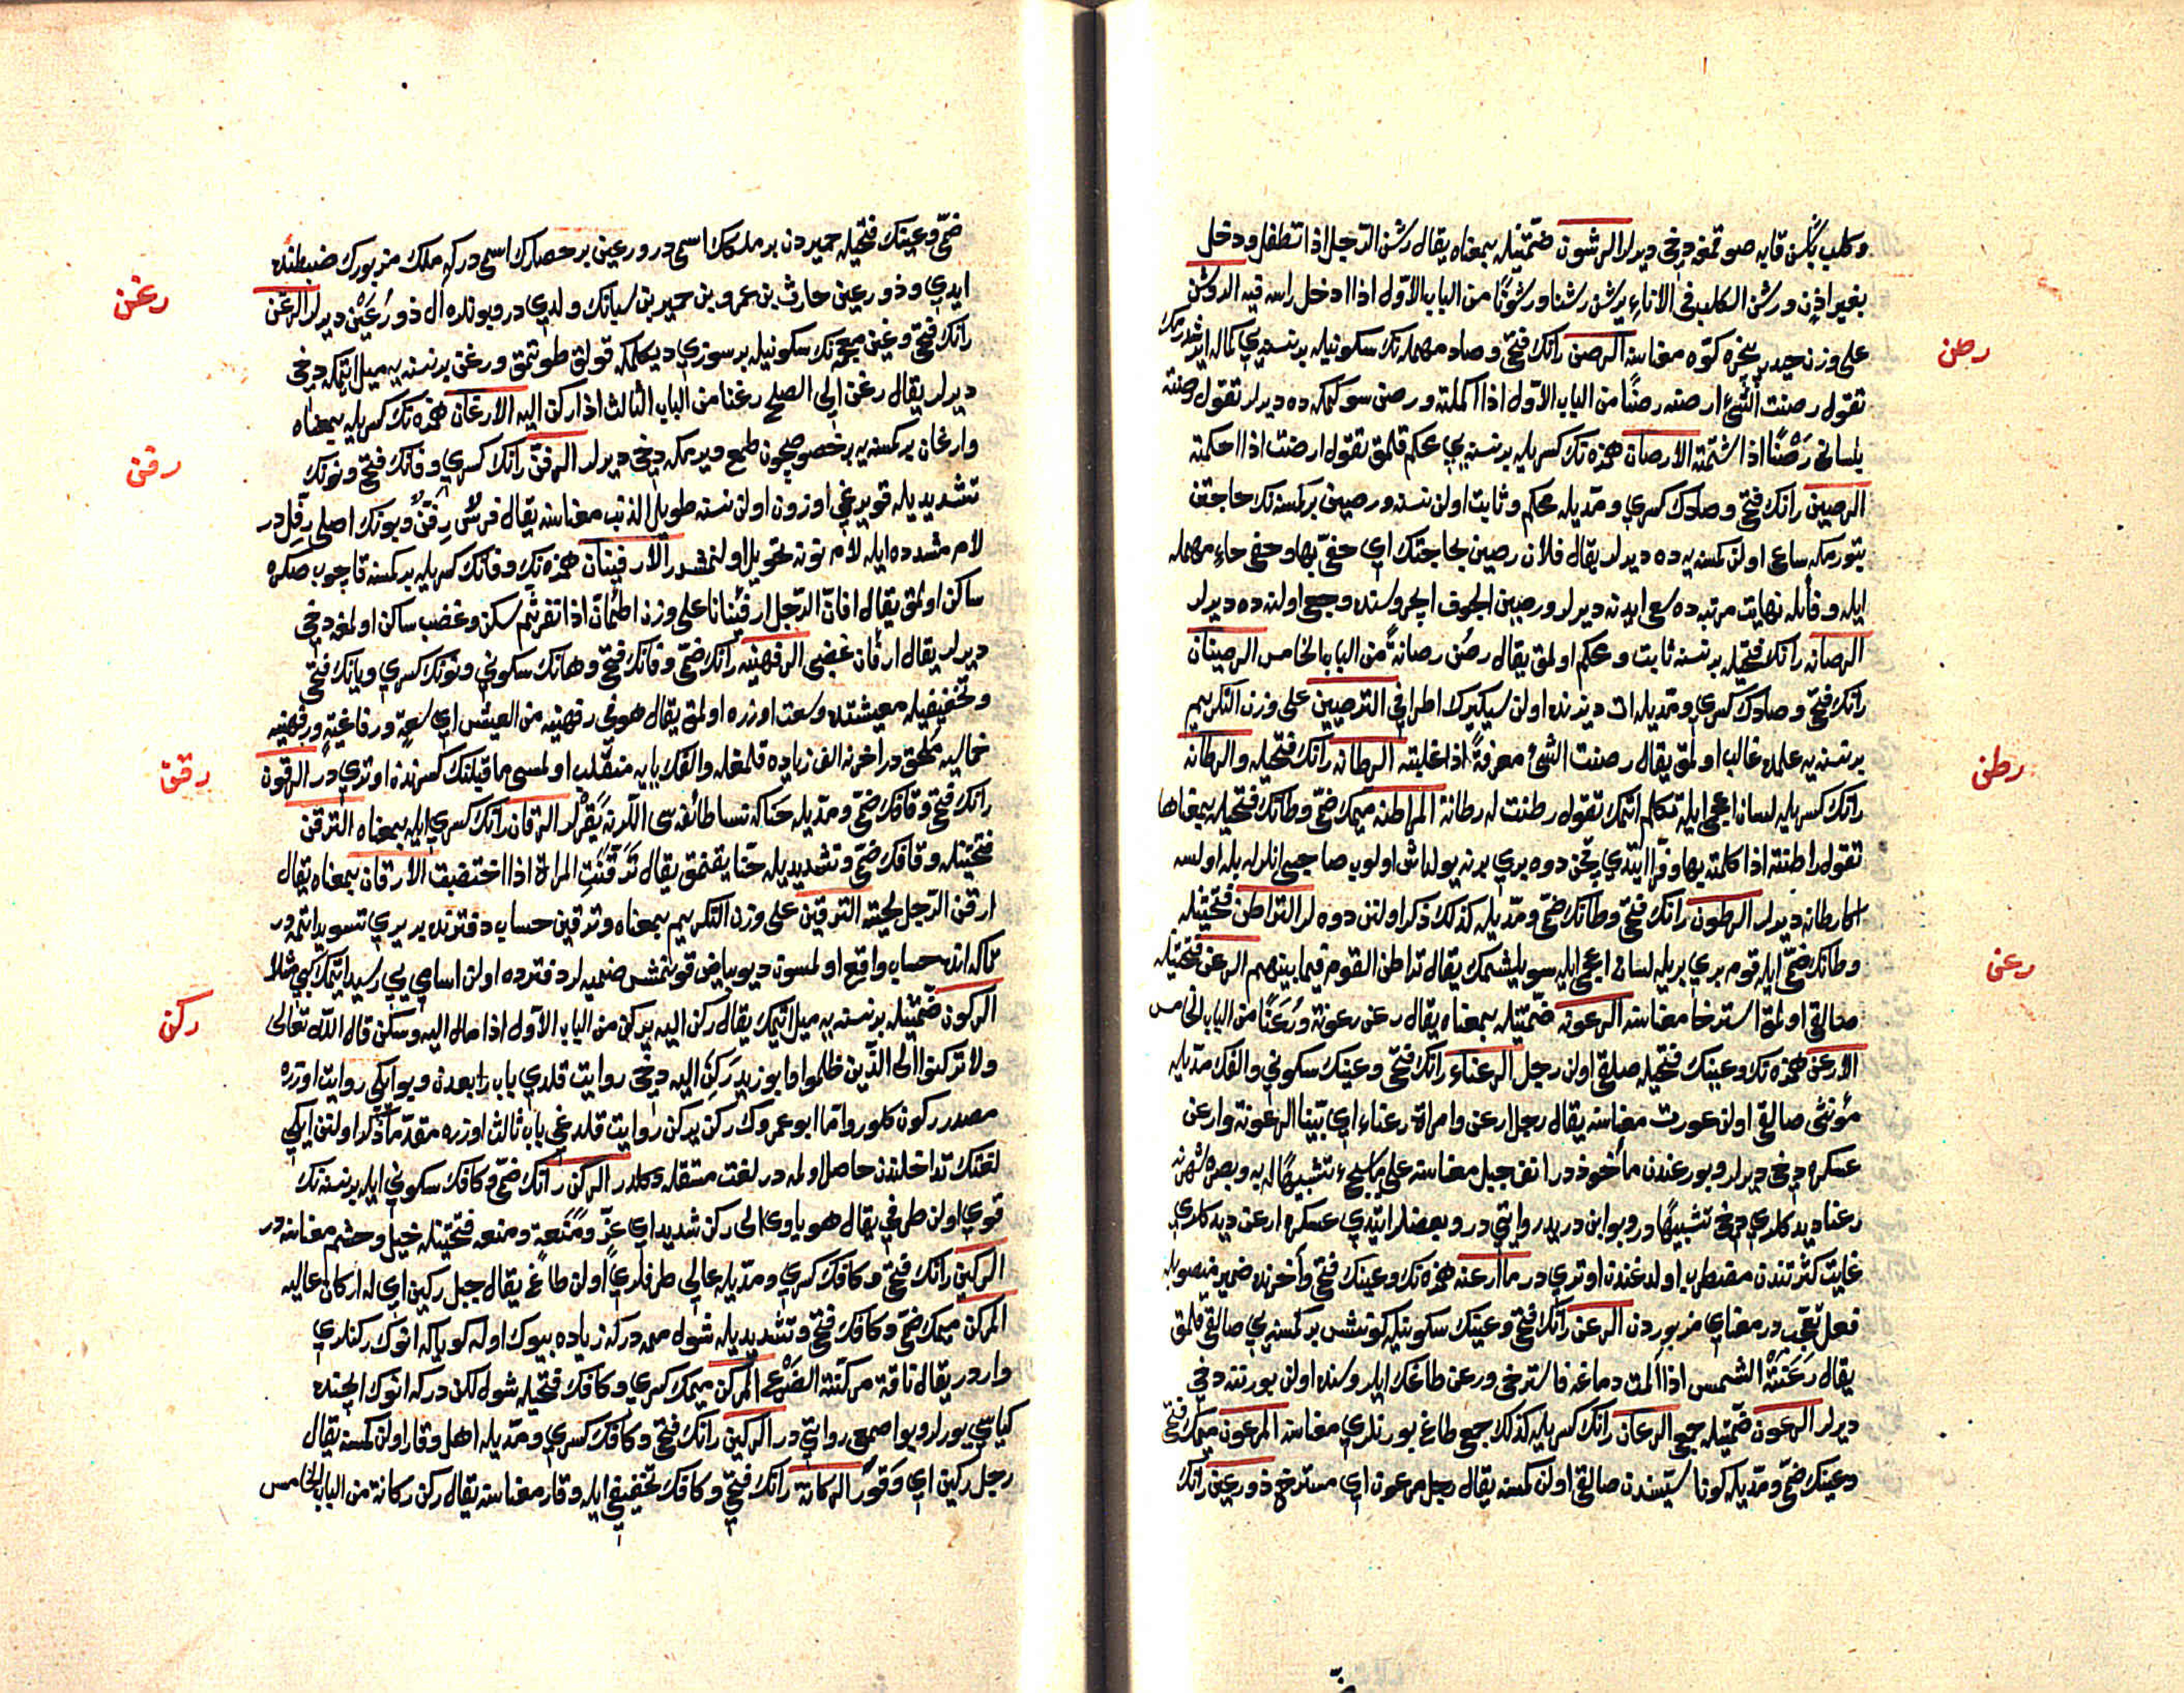 وكلب باشن قابه صوقمغه دخی دیرلر الرشون ضمّتیله بمعناه یقال رشن الرّجل اذا تطفل ودخل
بغیر اذن ورشن الكلب فی الاناء یرشن رشنا ورشوناً من الباب الاوّل اذا ادخل راسه فیه الروشن
علی وزن حیدر پنجره كوّه معناسنه الرصن رانك فتحی وصاد مهمله نك سكونیله برنسنه یی كماله ایرشدرمك
رصن
تقول رصنت الشئ ارصنه رصناً من الباب الاوّل اذا اكملته ورصن سوكمكه ده دیرلر تقول رصنته
بلسانی رَصْناً اذا شتمته الارصان همزه نك كسریله برنسنه یی محكم قلمق تقول ارصنت اذا احكمته
الرصین رانك فتحی وصادك كسری ومدّیله محكم وثابت اولن نسنه ورصین بركسنه نك حاجتن
بتورمكه ساعی اولن كمسنه یه ده دیرلر یقال فلان رصین بحاجتك ای حفیّ بها وحفی حاء مهمله
ایله وفائله نهایت مرتبه ده سعی ایدنه دیرلر ورصین الجوف ایچروسنده وجعی اولنه ده دیرلر
الرصانه رانك فتحیله برنسنه ثابت ومحكم اولمق یقال رصُن رصانةً من الباب الخامس الرصینان
رانك فتحی وصادك كسری ومدّیله ات دیزنده اولن سیكیرك اطرافی الترصین علی وزن التكریم
برنسنه یه علمده غالب اولمق یقال رصنت الشئ معرفةً اذا غلبته الرطانه رانك فتحیله والرطانه
رطن
رانك كسریله لسان اعجمی ایله تكلم اتمك تقول رطنت له رطانة المراطنه میمك ضمّی وطانك فتحیله بمعناها
تقول راطنته اذا كلمته بها وفرّا ایتدی قچن دوه بری برنه یولداش اولوب صاحبی انلرله بله اولسه
اكا رطانه دیرلر الرطون رانك فتحی وطانك ضمّی ومدّیله كذلك ذكر اولنن دوه لر التراطن فتحتیله
وطانك ضمّی ایله قوم بری بریله لسان اعجمی ایله سویلشمك یقال تراطن القوم فیما بینهم الرعن فتحتیله
رعن
صالقی اولمق استرخا معناسنه الرعونه ضمّتیله بمعناه یقال رعن رعونة ورَعَناً من الباب الخامس
الارعن همزه نك وعینك فتحیله صلقی اولن رجل الرعناء رانك فتحی وعینك سكونی والفك مدّیله
مؤنثی صالقی اولن عورت معناسنه یقال رجل ارعن وامراة رعناء ای بیّنا الرعونة وارعن
عسكره دخی دیرلر وبو رعندن مأخوذدر انف جبل معناسنه علی ما یجیء تشبیهًا له به وبصره شهرنه
رعنا دیدكلری دخی تشبیهًا در وبو ابن درید روایتی در وبعضلر ایتدی عسكره ارعن دیدكلری
غایت كثرتندن مضطرب اولدغندن اوتری در ما ارعنه همزه نك وعینك فتحی وآخرنده ضمیر منصوبله
فعل تعجّب در معنای مزبوردن الرعن رانك فتحی وعینك سكونیله كونش بركسنه یی صالقی قلمق
یقال رَعَنَتْهُ الشمس اذا آلمت دماغه فاسترخی ورعن طاغك ایلروسنده اولن بورننه دخی
دیرلر الرعون ضمّتیله جمعی الرعان رانك كسریله كذلك جمع طاغ بورنلری معناسنه المرعون میمك فتحی
وعینك ضمّی ومدّیله كون استیسندن صالقی اولن كمسنه یقال رجل مرعون ای مسترخی ذو رعین رانك
ضمّی وعینك فتحیله حمیردن بر ملكك اسمی در ورعین بر حصارك اسمی دركه ملك مزبورك ضبطنده
ایدی وذو رعین حارث بن عمرو بن حمیر بن سبانك ولدی در وبونده آل ذو رُعَیْن دیرلر الرغن
رغن
رانك فتحی وغین معجمه نك سكونیله بر سوزی دیكلمكه قولق طوتمق ورغن برنسنه یه میل اتمكه دخی
دیرلر یقال رغن الی الصلح رغنا من الباب الثالث اذا ركن الیه الارغان همزه نك كسریله بمعناه
وارغان بركمسنه یه بر خصوصیچون طمع ویرمكه دخی دیرلر الرفنّ رانك كسری وفانك فتحی ونونك
رفن
تشدیدیله قویرغی اوزون اولن نسنه طویل الذنب معناسنه یقال فرس رِفَنّ وبونك اصلی رِفَلّ در
لام مشدده ایله لام نونه تحویل اولنمشدر الارفینان همزه نك وفانك كسریله بركمسنه قاچوب صكره
ساكن اولمق یقال ارفانّ الرّجل ارفئنانا علی وزن اطمأنّ اذا نفر ثم سكن وغضب ساكن اولمغه دخی
دیرلر یقال ارفأن غضبی الرفهنیه رانك ضمّی وفانك فتحی وهانك سكونی ونونك كسری ویانك فتحی
وتخفیفیله معیشتده وسعت اوزره اولمق یقال هو فی رفهنیه من العیش ای سعةٍ ورفاغیةٍ ورفهنیه
خماسی یه ملحق در اخرنه الف زیاده قلمغله والفك یایه منقلب اولمسی ماقبلنك كسرندن اوتری در الرقون
رقن
رانك فتحی وقافك ضمّی ومدّیله حنا كه نسا طائفه سی اللرنه یقرلر الرقان رانك كسری ایله بمعناه الترقّن
فتحتیله وقافك ضمّی وتشدیدیله حنّا یقنمق یقال تَرَقّنَتِ المراة اذا اختضبت الارقان بمعناه یقال
ارقن الرّجل لحیته الترقین علی وزن التكریم بمعناه وترقین حساب دفترنده بر یری تسوید اتمه در
تاكه انده حساب واقع اولمسون دیو بیاض قونمش صنمیه لر دفترده اولن اسامی یی رسید اتمك كبی مثلا
الركون ضمّتیله برنسنه یه میل اتمك یقال ركن الیه یركن من الباب الاوّل اذا مال الیه وسكن قال الله تعالی
ركن
ولا تركنوا الی الّذین ظلموا واما ابو زید رَكِنَ الیه دخی روایت قلدی باب رابعدن وبو ایكی روایت اوزره
مصدر ركون كلور وامّا ابو عمروك ركن یركن روایت قلدغی باب ثالث اوزره مقدّما ذكر اولنن ایكی
لغتك تداخلندن حاصل اولمه در لغت مستقله دكلدر الركن رانك ضمّی وكافك سكونی ایله برنسنه نك
قوی اولن طرفی یقال هو یاوی الی ركن شدید ای عزّ ومَنَعةٍ ومنعه فتحتیله خیل وحشم معناسنه در
الركین رانك فتحی وكافك كسری ومدّیله عالی طرفلری اولن طاغ یقال جبل ركین ای له اركان عالیه
المركّن میمك ضمّی وكافك فتحی وتشدیدیله شول ممه دركه زیاده بیوك اوله كویا كه انوك ركنلری
واردر یقال ناقة مركّنة الضرع المركن میمك كسری وكافك فتحیله شول لكن دركه انوك ایچنده
كیاسی یورلر وبو اصمعی روایتی در الركین رانك فتحی وكافك كسری ومدّیله اهل وقار اولن كمسنه یقال
رجل ركین ای وَقورٌ الركانة رانك فتحی وكافك تخفیفی ایله وقار معناسنه یقال ركن ركانة من الباب الخامس